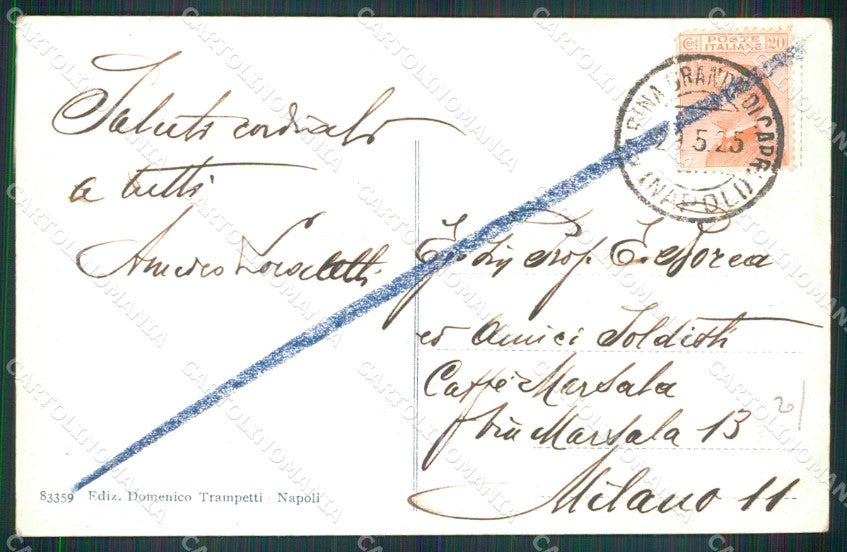 Saluti cordiali
a tutti
Amedeo
Cent POSTE ITALIANE 20
MARINA GRANDE DI CAPRI
5.25
(NAPOLI)
Eg. Sig. Prof. E.
ed Amici Soldisti
Caffè Marsala
Via Marsala 13
Milano 11
83359 Ediz. Domenico Trampetti - Napoli
CARTOLINOMANIA